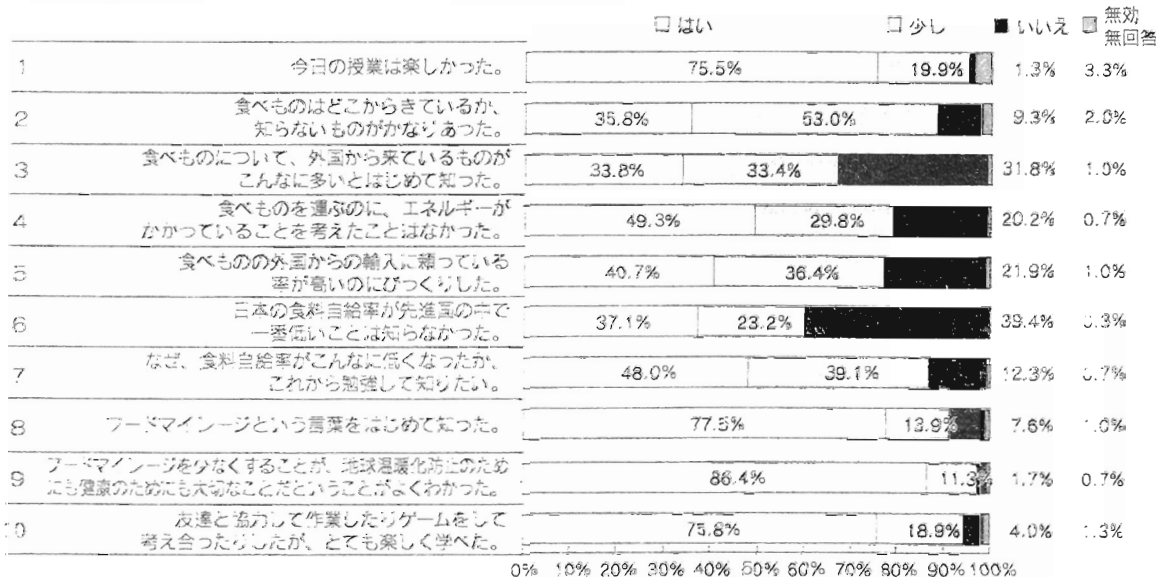 □ はい □ 少し ■ いいえ 無効
無回答
1 今日の授業は楽しかった。 75.5% 19.9% 1.3% 3.3%
2 食べものはどこからきているか、
知らないものがかなりあった。 35.8% 53.0% 9.3% 2.0%
3 食べものについて、外国から来ているものが
こんなに多いとはじめて知った。 33.8% 33.4% 31.8% 1.0%
4 食べものを運ぶのに、エネルギーが
かかっていることを考えたことはなかった。 49.3% 29.8% 20.2% 0.7%
5 食べものの外国からの輸入に頼っている
率が高いのにびっくりした。 40.7% 36.4% 21.9% 1.0%
6 日本の食料自給率が先進国の中で
一番低いことは知らなかった。 37.1% 23.2% 39.4% 0.3%
7 なぜ、食料自給率がこんなに低くなったか、
これから勉強して知りたい。 48.0% 39.1% 12.3% 0.7%
8 フードマイレージという言葉をはじめて知った。 77.5% 13.9% 7.6% 1.0%
9 フードマイレージを少なくすることが、地球温暖化防止のため
にも健康のためにも大切なことだということがよくわかった。 86.4% 11.3% 1.7% 0.7%
10 友達と協力して作業したりゲームをして
考え合ったりしたが、とても楽しく学べた。 75.8% 18.9% 4.0% 1.3%
0% 10% 20% 30% 40% 50% 60% 70% 80% 90% 100%